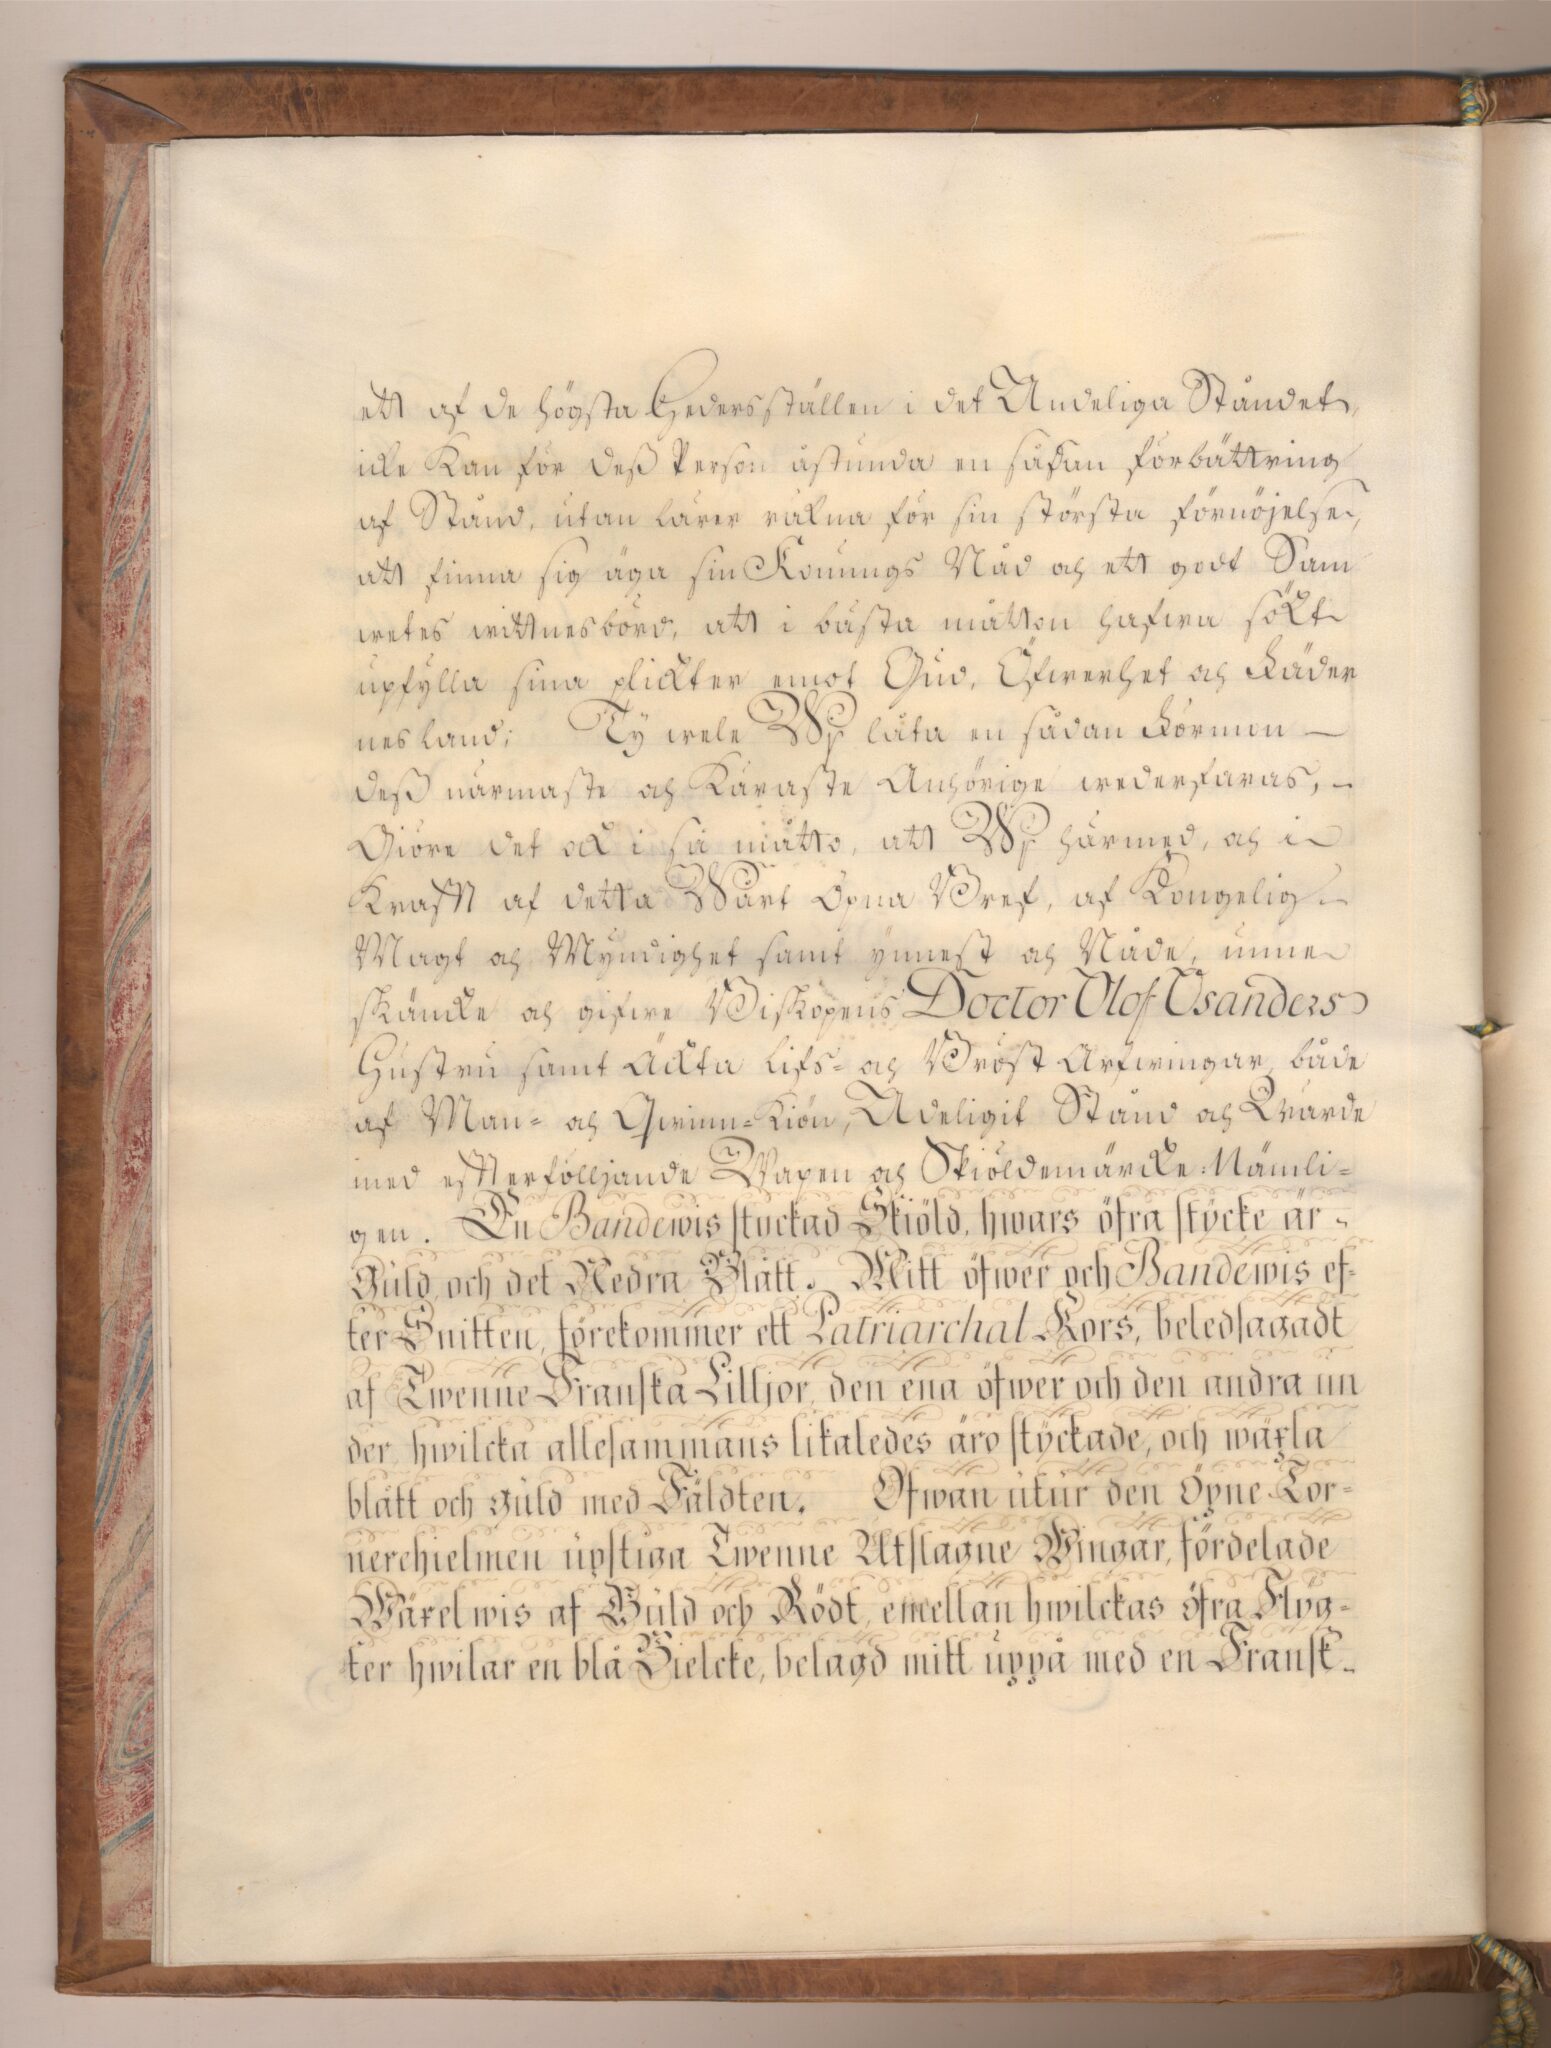 ett af de högsta Hedersställen i det Andeliga Ståndet,
icke Kan för deß Person åstunda en sådan förbättring
af Stånd, utan lärer räkna för sin största förnöjelse,
att finna sig äga sin Konungs Nåd och ett godt Sam
wetes wittnesbörd, att i bästa måtton hafwa sökt
upfylla sina plickter emot Gud, Öfwerhet och Fäder
nesland; Ty wele Wij låta en sådan Förmon
deß närmaste och Käraste Anhörige wederfaras,
Giöre det ock i så måtto, att Wij härmed, och i
Krafft af detta Wårt Öpna Bref, af Kongelig
Magt och Myndighet samt ynnest och Nåde, unne
skäncke och gifwe Biskopens Doctor Olof Osanders
Hustru samt Ächta Lifs- och Bröst Arfwingar, både
af Man- och Qwinn-Kiön, Adeligit Stånd och Wärde
med effterfölljande Wapen och Skiöldemärcke: Nämli-
gen. En Bandewis styckad Skiöld, hwars öfra stycke är
Guld, och det Nedra Blått. Mitt öfwer och Bandewis ef-
ter Snitten, förekommer ett Patriarchal Kors, beledsagadt
af Twenne Franska Lilljor, den ena öfwer och den andra un
der, hwilcka allesammans likaledes äro styckade, och wäxla
blått och guld med Fäldten. Ofwan utur den Öpne Tor-
nerehielmen upstiga Twenne Utslagne Wingar, fördelade
Wäxelwis af Guld och Rödt, emellan hwilckas öfra Flög-
ter hwilar en blå Bielcke, belagd mitt uppå med en Fransk